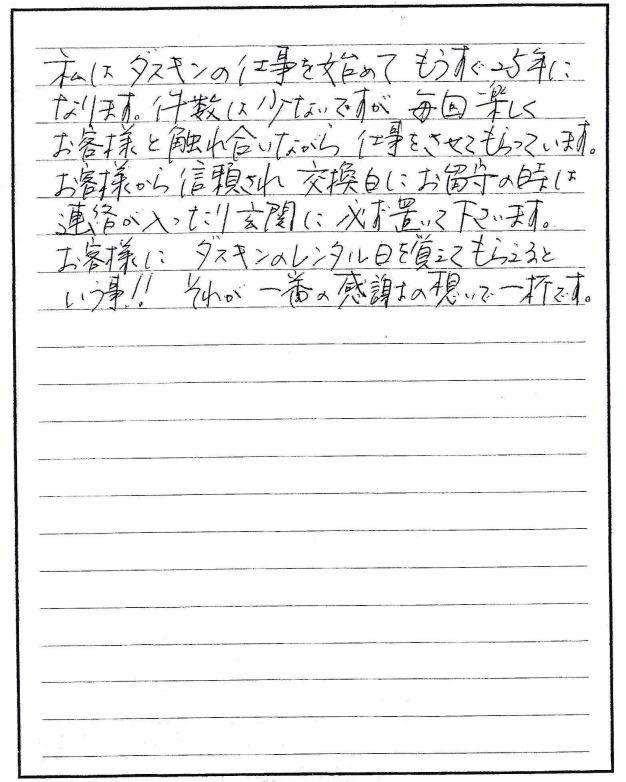 私は ダスキンの仕事を始めて もうすぐ25年に
なります。件数は少ないですが 毎回 楽しく
お客様と触れ合いながら 仕事をさせてもらっています。
お客様から信頼され 交換日に お留守の時は
連絡が入ったり玄関に 必ず置いて下さいます。
お客様に ダスキンのレンタル日を覚えてもらえると
いう事!! それが 一番の感謝の想いで一杯です。